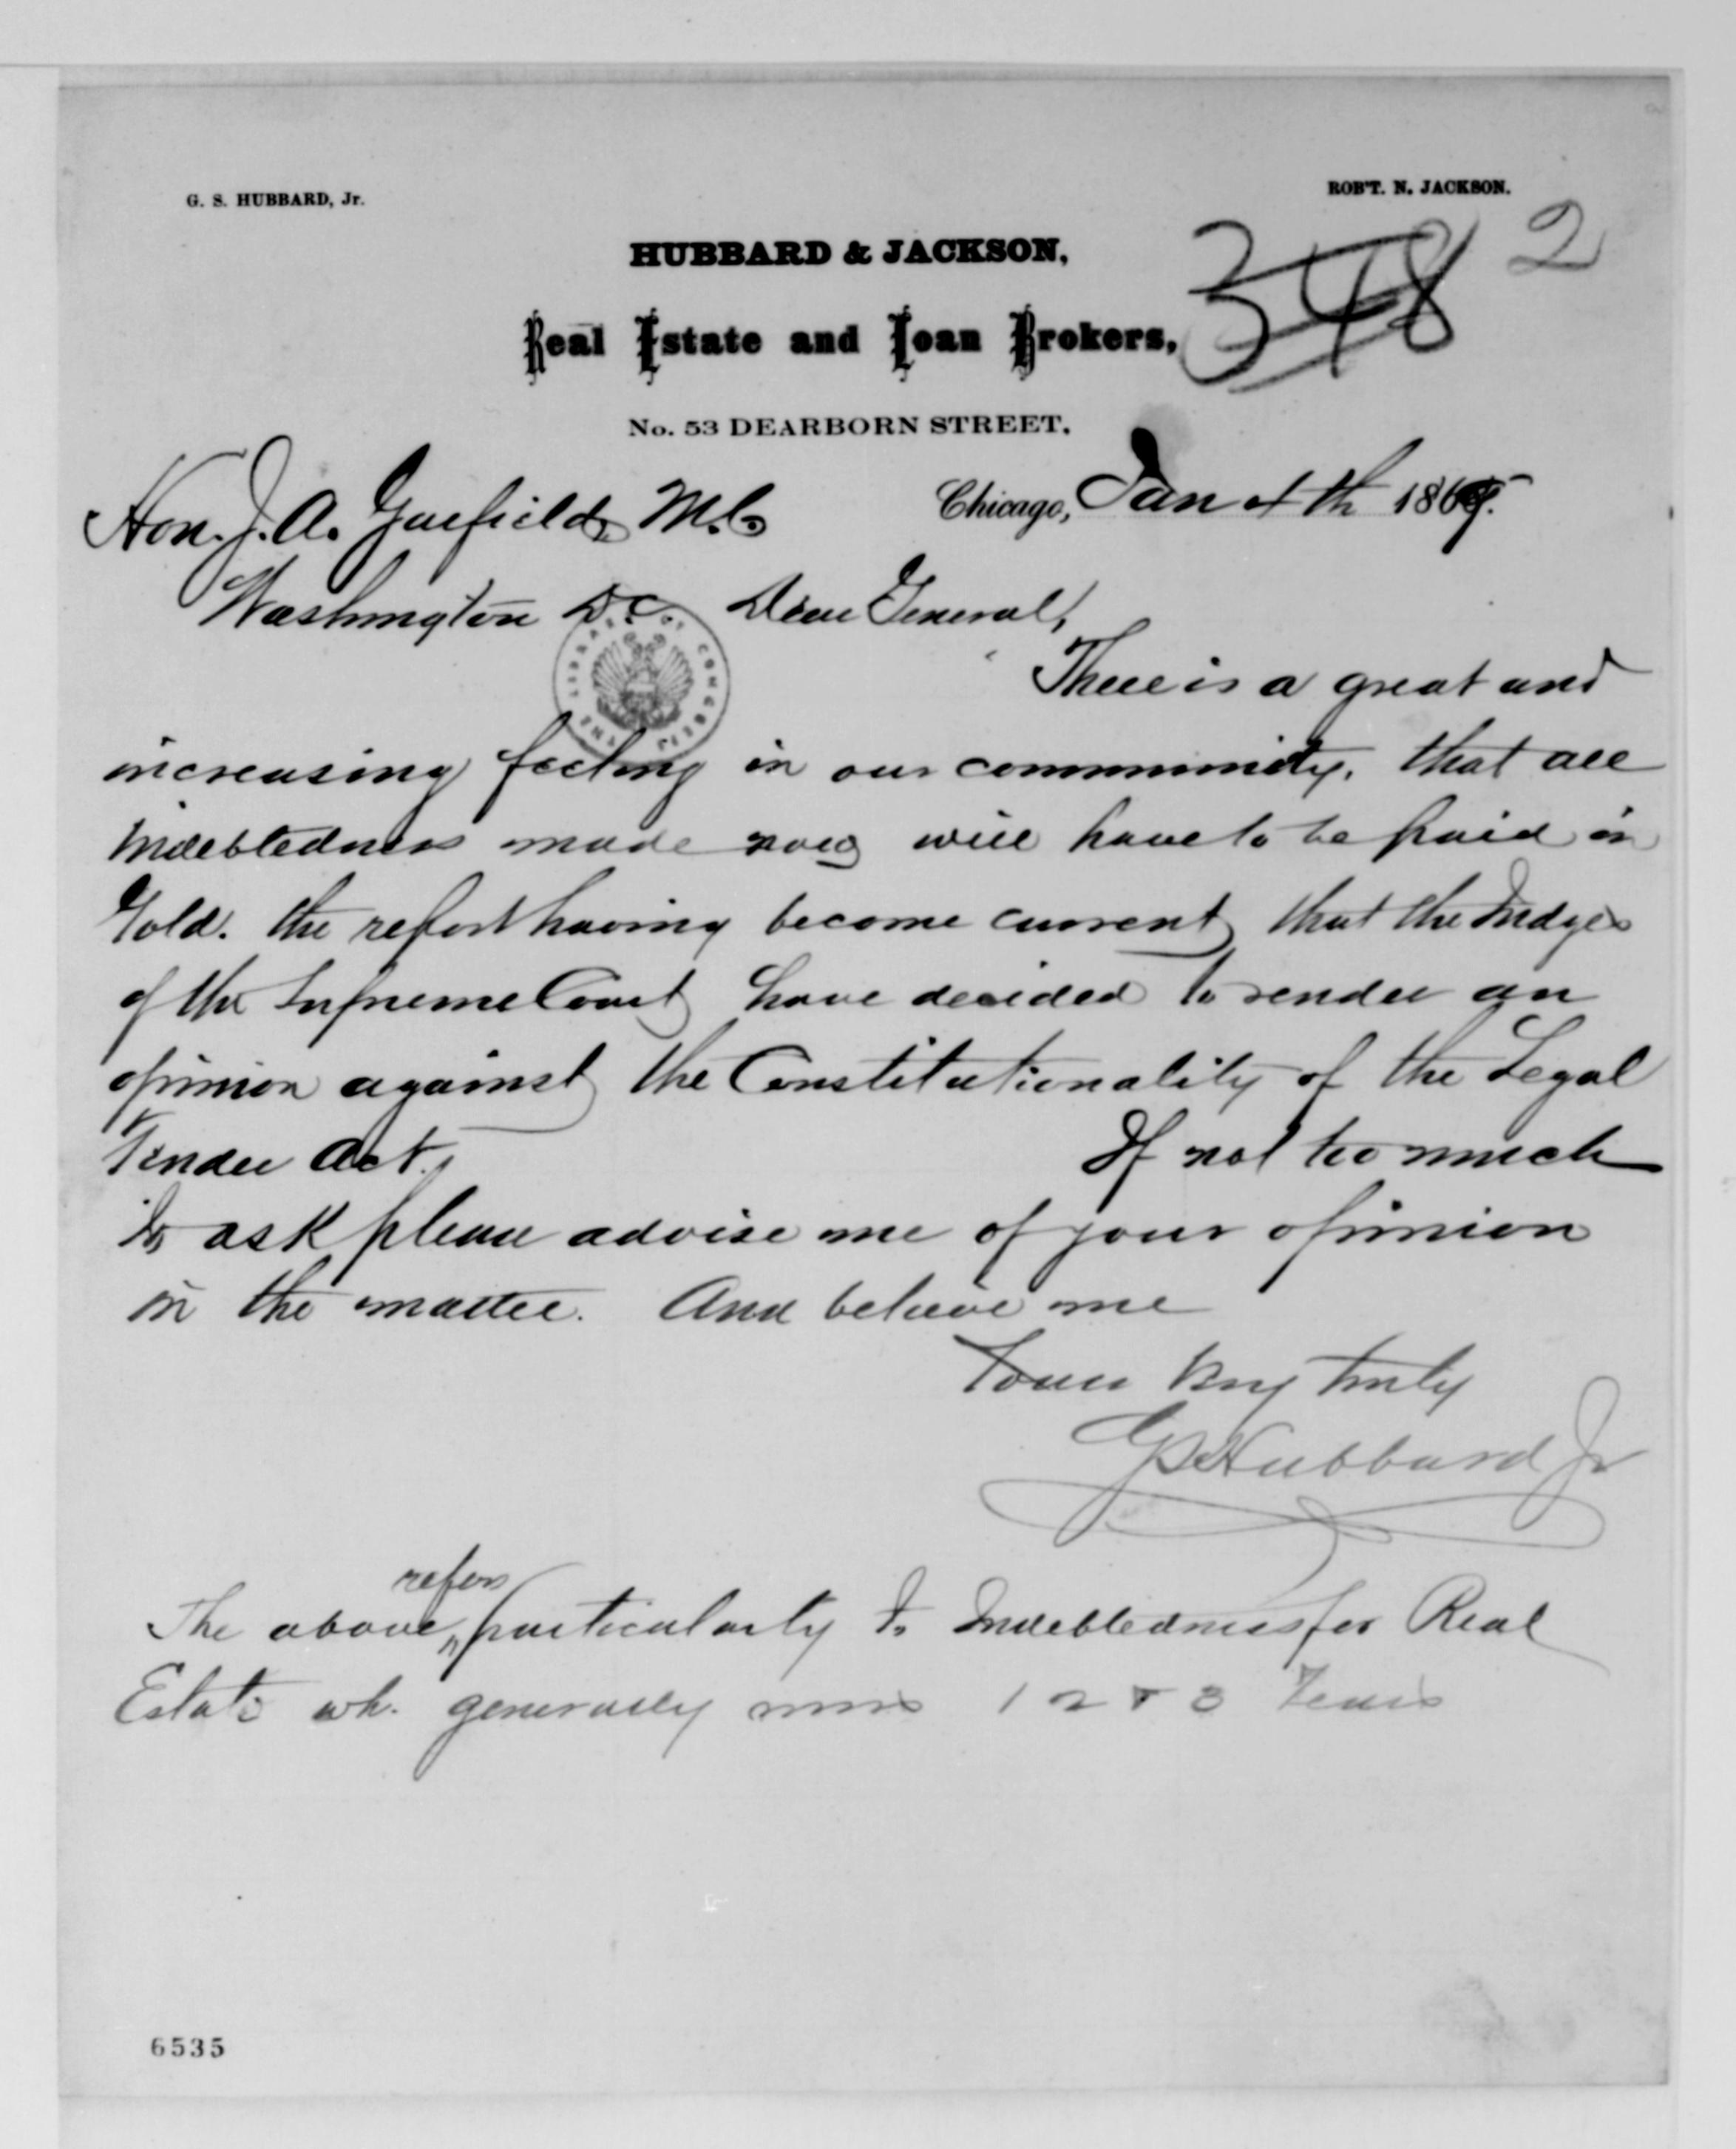 G. S. HUBBARD, Jr.
ROB'T. N. JACKSON.
HUBBARD & JACKSON,
348 2
Real Estate and Loan Brokers,
No. 53 DEARBORN STREET.
Chicago, Jan 4th 1869.
Hon. J. A. Garfield M.C.
Washington D.C. Dear General,
THE LIBRARY OF CONGRESS
There is a great and
increasing feeling in our community, that all
Indebtedness made now will have to be paid in
Gold. the report having become current that the Judges
of the Supreme Court have decided to render an
opinion against the Constitutionality of the Legal
Tender Act. If not too much
to ask please advise me of your opinion
in the matter. And believe me
Yours Very truly
G S Hubbard Jr
refers
The above particularly to Indebtedness for Real
Estate wh. generally runs 1 2 & 3 Years
6535